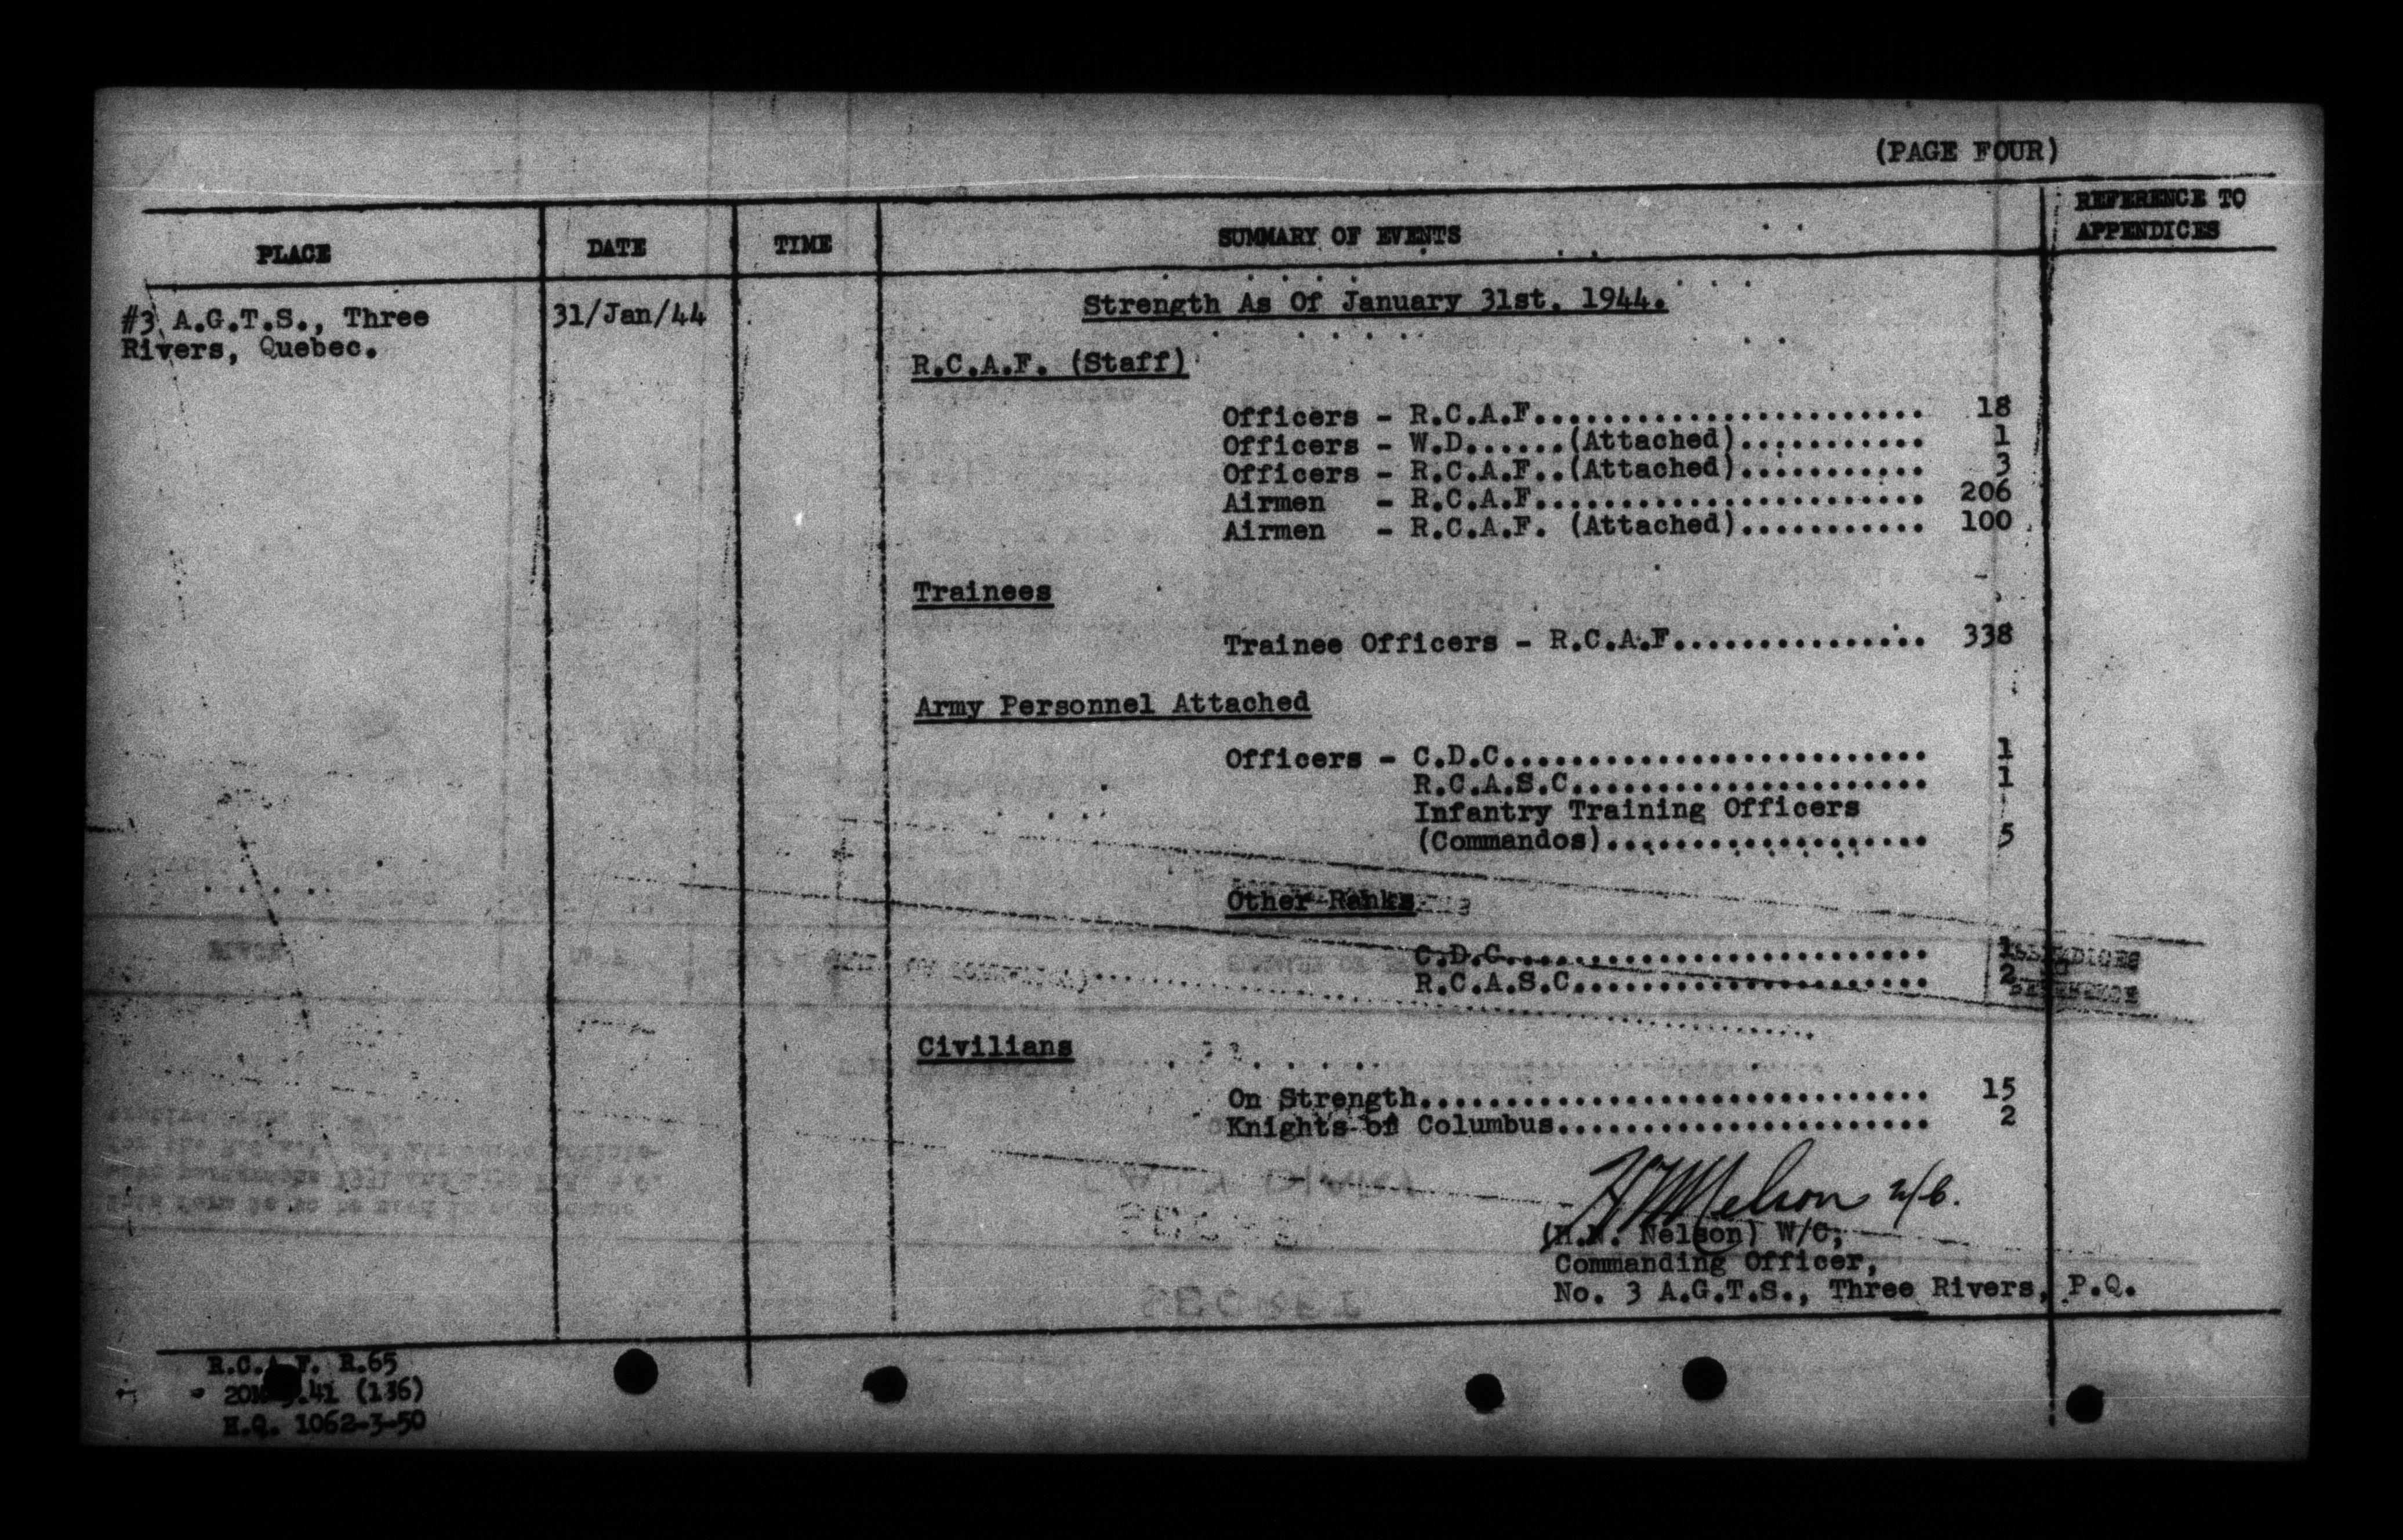 (PAGE FOUR)
PLACE DATE TIME SUMMARY OF EVENTS REFERENCE TO APPENDICES
#3 A.G.T.S., Three 31/Jan/44 Strength As Of January 31st. 1944.
Rivers, Quebec.
R.C.A.F. (Staff)
Officers - R.C.A.F....................... 18
Officers - W.D......(Attached)........... 1
Officers - R.C.A.F..(Attached)........... 3
Airmen - R.C.A.F....................... 206
Airmen - R.C.A.F. (Attached)........... 100
Trainees
Trainee Officers - R.C.A.F............... 338
Army Personnel Attached
Officers - C.D.C......................... 1
R.C.A.S.C..................... 1
Infantry Training Officers
(Commandos)................... 5
Other Ranks
C.D.C......................... 1
R.C.A.S.C..................... 2
Civilians
On Strength.............................. 15
Knights of Columbus...................... 2
Nelson W/C.
Nelson) W/C,
Commanding Officer,
No. 3 A.G.T.S., Three Rivers, P.Q.
R.C.A.F. R.65
41 (136)
H.Q. 1062-3-50